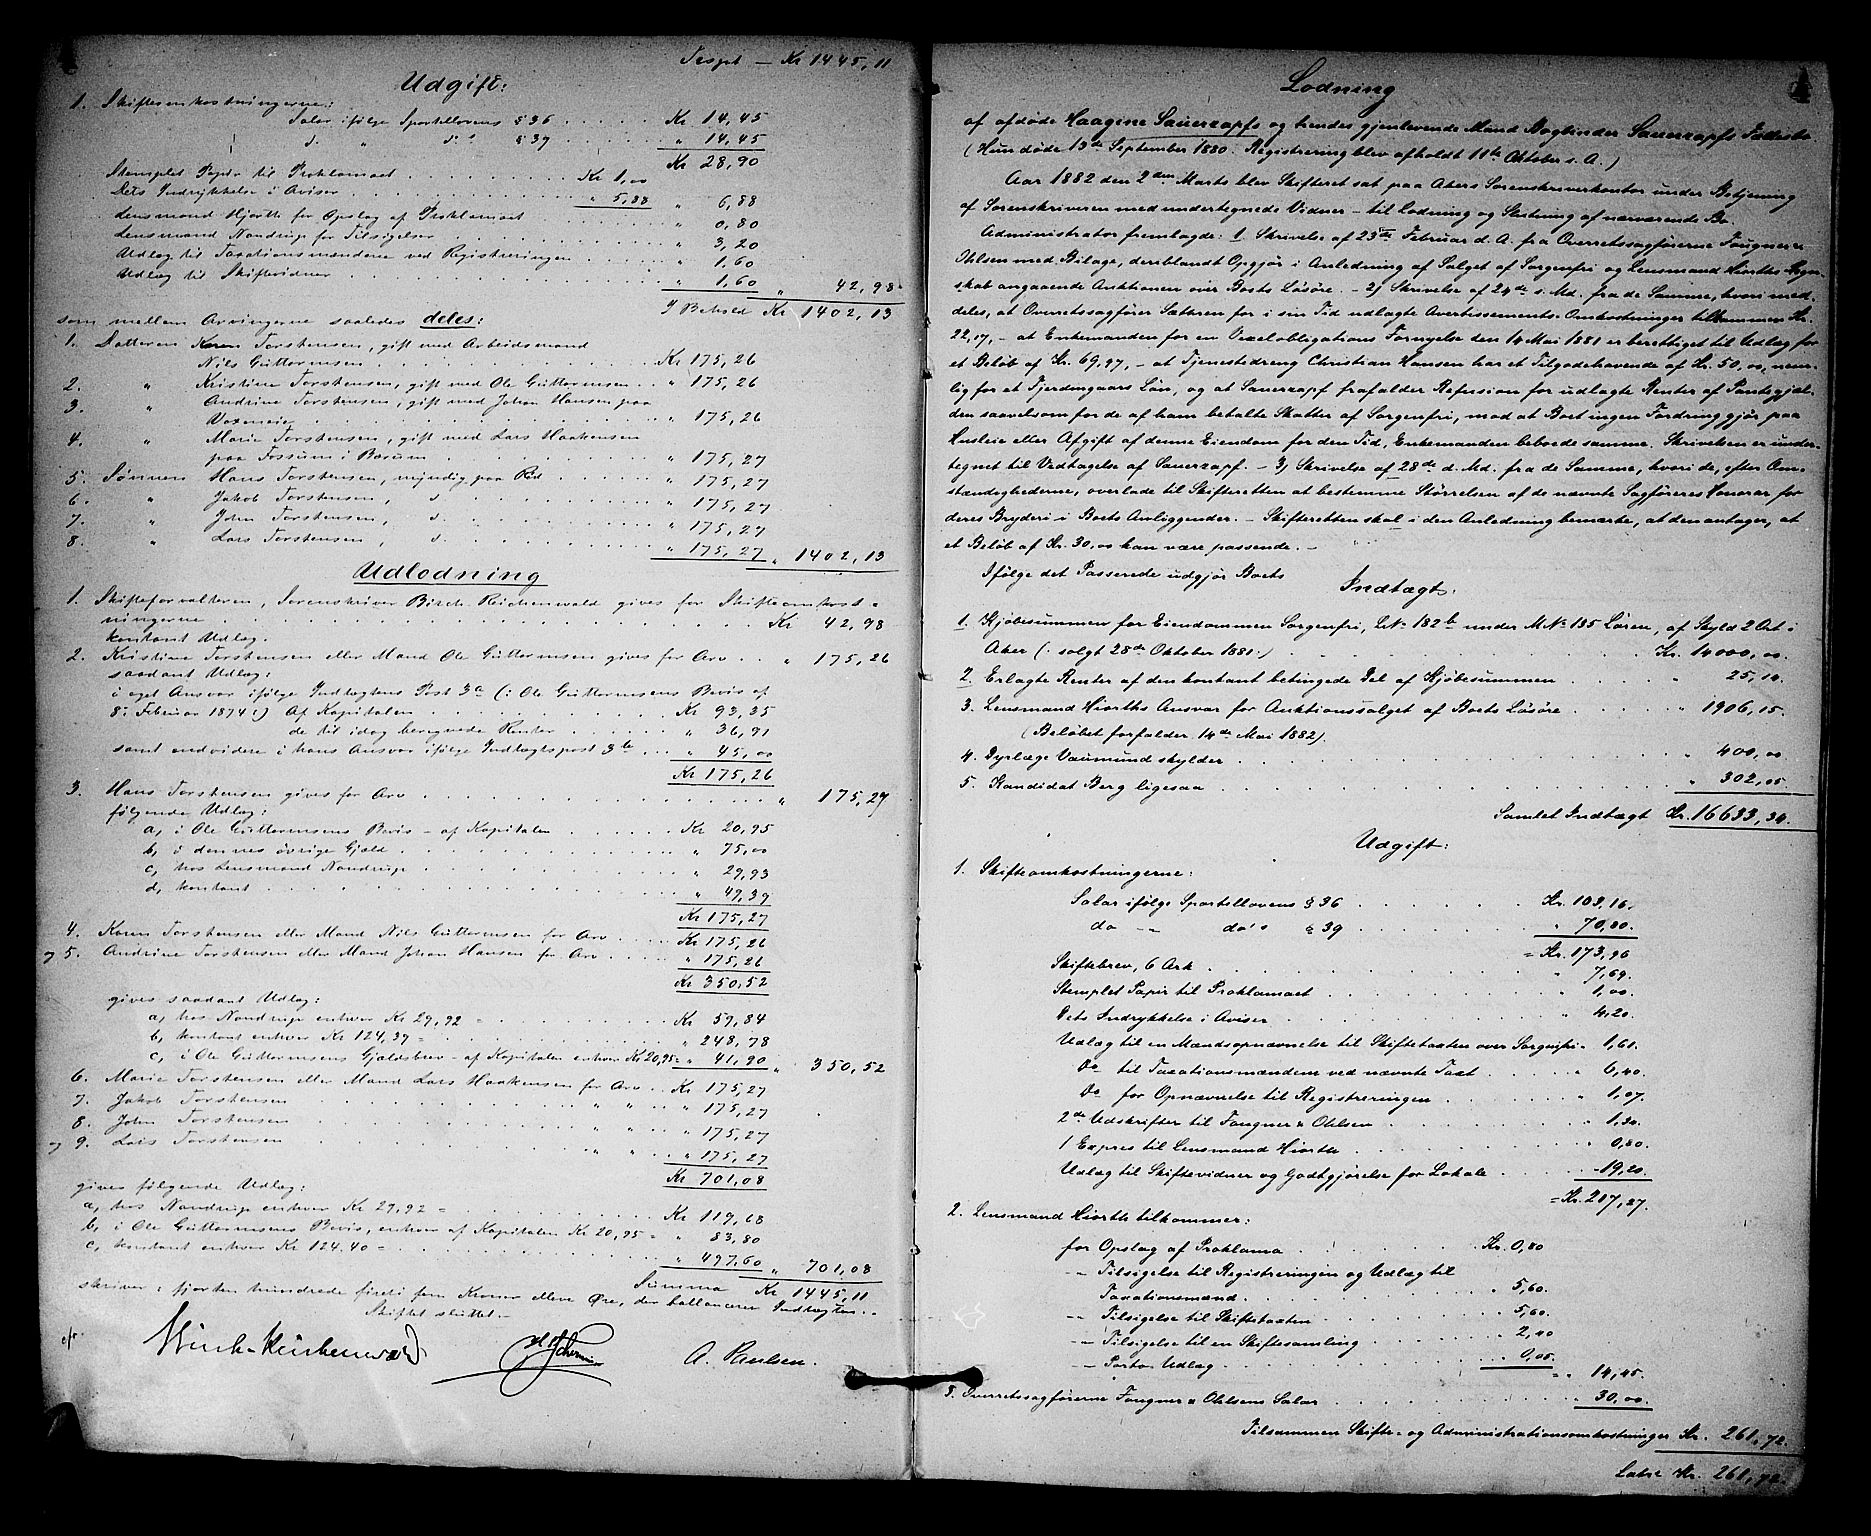 Transpt — Kr 1445,11
Udgift:
1. Skifteomkostningerne:
Salær ifølge Sportellovens § 36 . . . . . Kr 14,45
d. " d.º § 39 . . . . . " 14,45
Kr 28,90
Stemplet Papir til Proklamaet . . . . . Kr 1,00
Dets Indrykkelse i Aviser . . . . . " 5,88 " 6,88
Lensmand Hjorth for Opslag af Proklamaet " 0,80
Lensmand Nandrup for Tilsigelser . . . . . " 3,20
Udlæg til Taxationsmændene ved Registreringen . . . . . " 1,60
Udlæg til Skiftevidner . . . . . " 1,60 " 42,98
I Behold Kr 1402,13
som mellem Arvingerne saaledes deles:
1. Datteren Karen Torstensen, gift med Arbeidsmand
Nils Guttormsen . . . . . Kr 175,26
2. " Kristine Torstensen, gift med Ole Guttormsen . . " 175,26
3. " Andrine Torstensen, gift med Johan Hansen paa
Voxeneie . . . . . " 175,26
4. " Marie Torstensen, gift med Lars Haakensen
paa Fossum i Bærum . . . . . " 175,27
5. Sønnen Hans Torstensen, myndig paa Rød . . . . . " 175,27
6. " Jakob Torstensen, d. . . . . . " 175,27
7. " John Torstensen, d. . . . . . " 175,27
8. " Lars Torstensen, d. . . . . . " 175,27 " 1402,13
Udlodning
1. Skifteforvalteren, Sorenskriver Birch-Reichenwald gives for Skifteomkost-
ningerne . . . . . Kr 42,98
kontant Udlæg.
2. Kristine Torstensen eller Mand Ole Guttormsen gives for Arv . . " 175,26
saadant Udlæg:
i eget Ansvar ifølge Indtægtens Post 3a (: Ole Guttormsens Bevis af
8. Februar 1874 :) Af Kapitalen . . . . . Kr 93,35
de til idag beregnede Renter . . . . . " 36,91
samt endvidere i hans Ansvar ifølge Indtægtspost 3b . . . " 45,00
Kr 175,26
3. Hans Torstensen gives for Arv . . . . . " 175,27
følgende Udlæg:
a, i Ole Guttormsens Bevis – af Kapitalen . . . . . Kr 20,95
b, i dennes øvrige Gjæld . . . . . " 75,00
c, hos Lensmand Nandrup . . . . . " 29,93
d, kontant . . . . . " 49,39
Kr 175,27
4. Karen Torstensen eller Mand Nils Guttormsen for Arv . . . . Kr 175,26
og 5. Andrine Torstensen eller Mand Johan Hansen for Arv . . . . " 175,26
Kr 350,52
gives saadant Udlæg:
a, hos Nandrup enhver Kr 29,92 = . . . . . Kr 59,84
b, kontant enhver Kr 124,39 = . . . . . " 248,78
c, i Ole Guttormsens Gjældsbrev – af Kapitalen enhver Kr 20,95 = " 41,90 " 350,52
6. Marie Torstensen eller Mand Lars Haakensen for Arv . . Kr 175,27
7. Jakob Torstensen . . . . . " " . . " 175,27
8. John Torstensen . . . . . " " . . " 175,27
og 9. Lars Torstensen . . . . . " " . . " 175,27
Kr 701,08
gives følgende Udlæg:
a, hos Nandrup enhver Kr 29,92 = . . . . . Kr 119,68
b, i Ole Guttormsens Bevis, enhver af Kapitalen Kr 20,95 = " 83,80
c, kontant enhver Kr 124.40 = . . . . . " 497,60 " 701,08
Summa Kr 1445,11
skriver: fjorten hundrede firti fem Kroner elleve Øre, der ballancerer Indtægten. –
Skiftet sluttet. –
Birch-Reichenwald
A. Paulsen.
Lodning
af afdøde Haagine Sauerzapfs og hendes gjenlevende Mand Bogbinder Sauerzapfs Fællesbo
(Hun døde 13de September 1880. Registrering blev afholdt 11te Oktober s. A.)
Aar 1882 den 2den Marts blev Skifteret sat paa Akers Sorenskriverkontor under Betjening
af Sorenskriveren med undertegnede Vidner – til Lodning og Slutning af nærværende Bo.
Administrator fremlagde: 1. Skrivelse af 23de Februar d. A. fra Overretssagførerne Fougner &
Ohlsen med Bilage, deriblandt Opgjør i Anledning af Salget af Sorgenfri og Lensmand Hiorths Regn-
skab angaaende Auktionen over Boets Løsøre. – 2) Skrivelse af 24de s. Md. fra de Samme, hvori med-
deles, at Overretssagfører Sæthren for i sin Tid udlagte Avertissements-Omkostninger tilkommer Kr.
22,07, – at Enkemanden for en Vexelobligations Fornyelse den 14 Mai 1881 er berettiget til Udlæg for
et Beløb af Kr. 69,97, – at Tjenestedreng Christian Hansen har et Tilgodehavende af Kr. 50,00, nem-
lig for et Fjerdingaars Løn, og at Sauerzapf frafalder Refussion for udlagte Renter af Pantegjæl-
den saavelsom for de af ham betalte Skatter af Sorgenfri, mod at Boet ingen Fordring gjør paa
Husleie eller Afgift af denne Eiendom for den Tid, Enkemanden beboede samme. Skrivelsen er under-
tegnet til Vedtagelse af Sauerzapf. – 3) Skrivelse af 28de d. Md. fra de Samme, hvori de, efter Om-
stændighederne, overlade til Skifteretten at bestemme Størrelsen af de nævnte Sagføreres Honorar for
deres Bryderi i Boets Anliggender. – Skifteretten skal i den Anledning bemærke, at den antager, at
et Beløb af Kr. 30,00 kan være passende. –
Ifølge det Passerede udgjør Boets
Indtægt:
1. Kjøbesummen for Eiendommen Sorgenfri, L.No 182b under M.No 135 Løren, af Skyld 2 Ort i
Aker (: solgt 28de Oktober 1881 :) . . . . . Kr. 14000,00.
2. Erlagte Renter af den kontant betingede Del af Kjøbesummen . . . . . " 25,14.
3. Lensmand Hiorths Ansvar for Auktionssalget af Boets Løsøre . . . . . " 1906,15.
(Beløbet forfalder 14de Mai 1882).
4. Dyrlæge Vaumund skylder . . . . . " 400,00
5. Kandidat Berg ligesaa . . . . . " 302,05
Samlet Indtægt Kr. 16633,34.
Udgift:
1. Skifteomkostningerne:
Salær ifølge Sportellovens § 36 . . . . . Kr. 103,16.
do – – do's § 39 . . . . . " 70,80.
= Kr. 173,96
Skiftebrev, 6 Ark . . . . . " 7,69.
Stemplet Papir til Proklamaet . . . . . " 1,00.
Dets Indrykkelse i Aviser . . . . . " 4,20.
Udlæg til en Mændsopnævnelse til Skiftetaxten over Sorgenfri " 1,61.
Do til Taxationsmændene ved nævnte Taxt . . . . . " 6,40.
Do for Opnævnelse til Registreringen . . . . . " 1,07.
2de Udskrifter til Fougner & Ohlsen . . . . . " 1,30.
1 Expres til Lensmand Hiorth . . . . . " 0,80.
Udlæg til Skiftevidner og Godtgjørelse for Lokale . . . . . - 19,20.
= Kr. 217,27.
2. Lensmand Hiorth tilkommer:
for Opslag af Proklama . . . . . Kr. 0,80
– – Tilsigelse til Registreringen og Udlæg til
Taxationsmænd . . . . . " 5,60.
– – Tilsigelse til Skiftetaxten . . . . . " 5,60.
– – Tilsigelse til en Skiftesamling . . . . . " 2,40
– – Porto-Udlæg . . . . . " 0,05. = " 14,45.
3. Overretssagførerne Fougner & Ohlsens Salær . . . . . " 30,00.
Tilsammen Skifte- og Administrationsomkostninger Kr. 261,72.
Latus Kr. 261,72.